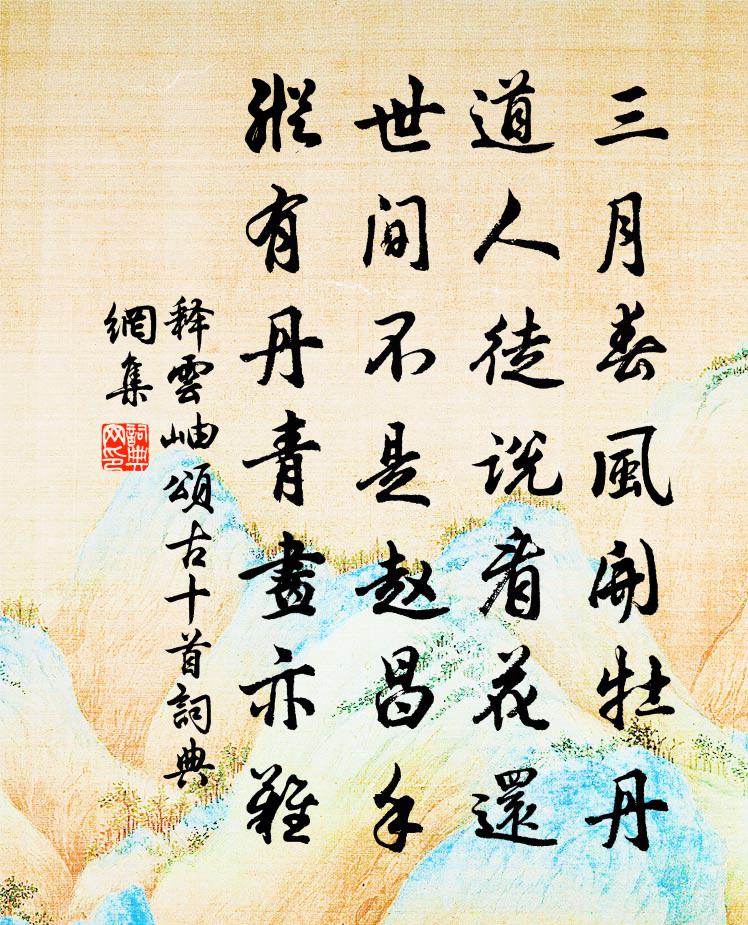 三月春風開牡丹
道人徒説看花還
世間不是趙昌手
縱有丹青畫亦難
释雲岫頌古十首詞典
網集
詞典
网印